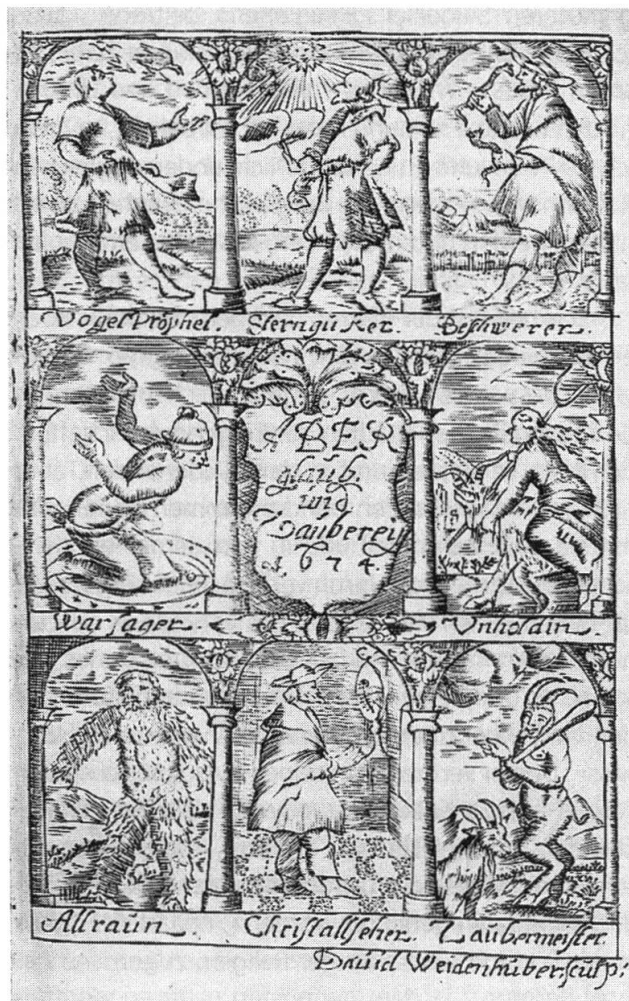 VogelProphet. Sterngucker. Beschwerer.
ABER
glaub.
und
Zauberey
1674.
Warsager. Unholdin.
Allraun. Christallseher. Zaubermeister.
David Weidenhüber, sculp: